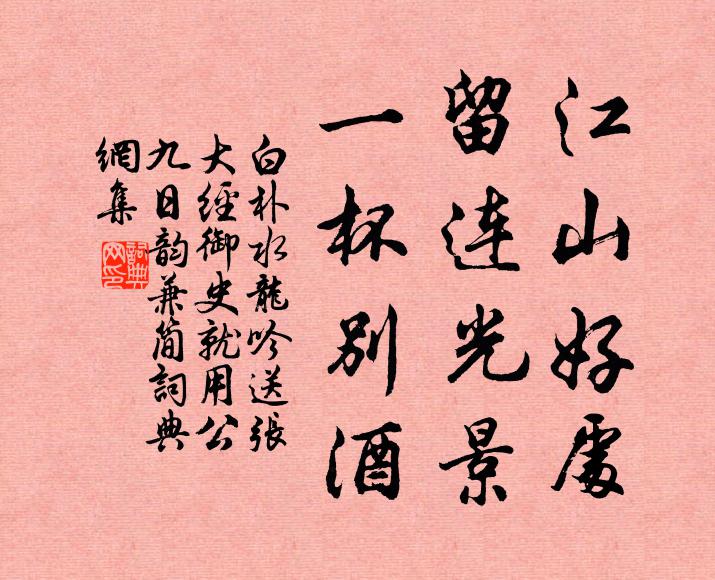 江山好處
留連光景
一杯別酒
白朴水龍吟送張
大經御史就用公
九日韵兼簡詞典
網集
詞典網印